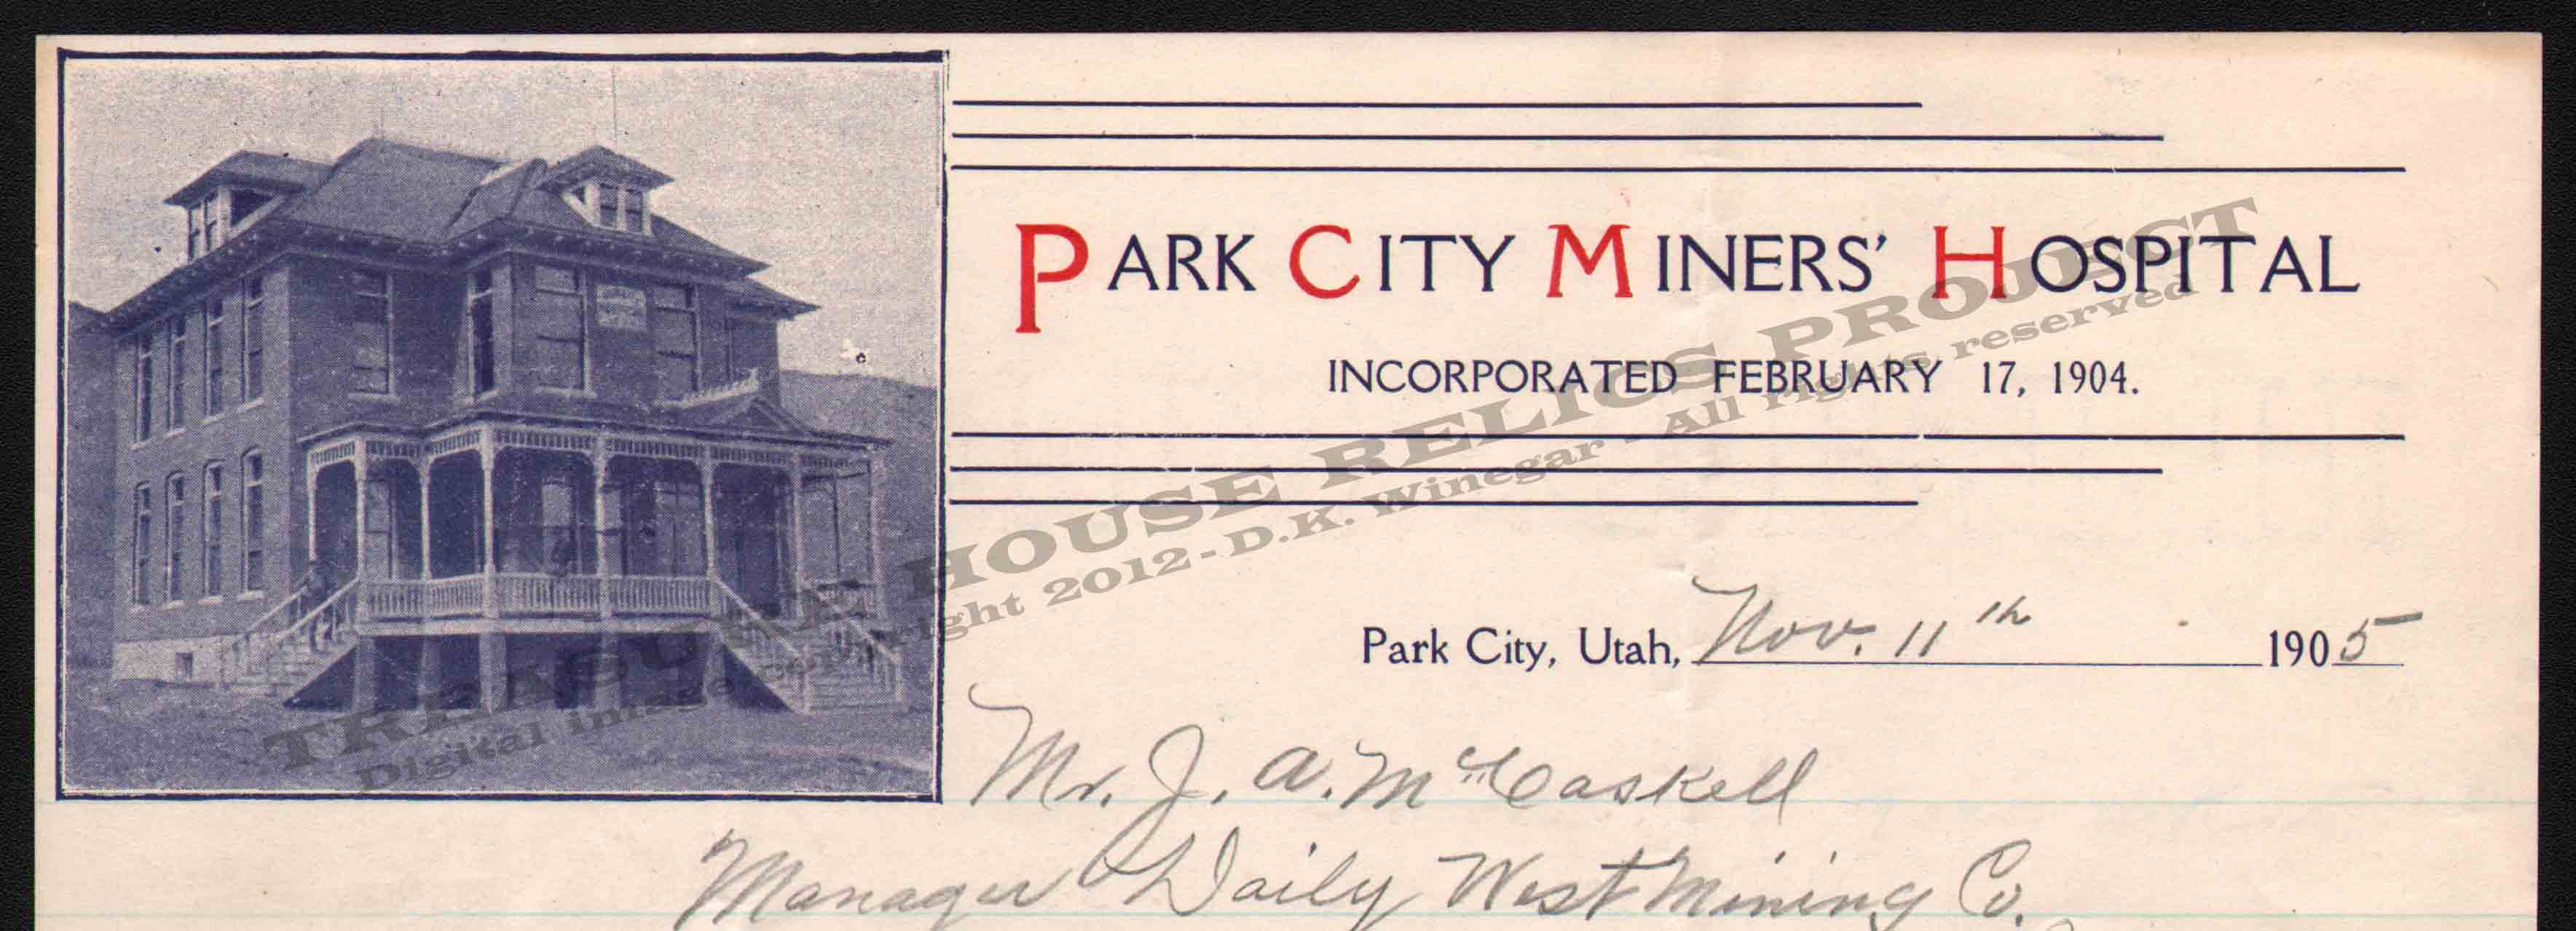 PARK CITY MINERS' HOSPITAL
INCORPORATED FEBRUARY 17, 1904.
Park City, Utah, Nov. 11th 1905
Mr. J. A. McCaskell
Manager Daily West Mining Co.
TREASURE HOUSE RELICS PROJECT
Digital image copyright 2012 - D.K. Winegar - All rights reserved